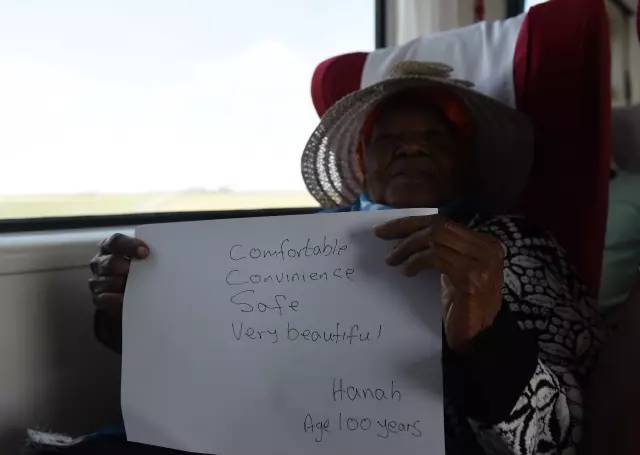 Comfortable
Convinience
Safe
Very beautiful
Hanah
Age 100 years